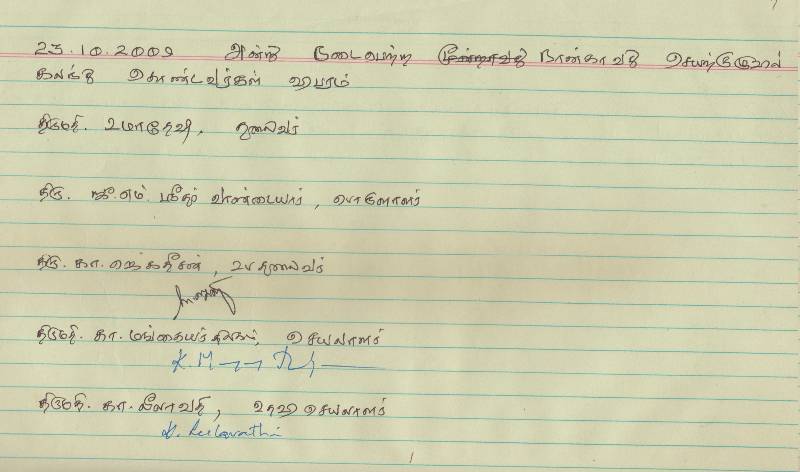 23.10.2009 அன்று நடைபெற்ற நான்காவது செயற்குழுவில்
கலந்து கொண்டவர்கள் விபரம்
திருமதி. உமாதேவி, தலைவர்
திரு. ஜி.எம். ஸ்ரீதர் வாண்டையார், பொருளாளர்
திரு. கா. ஜெகதீசன், உபதலைவர்
திருமதி. கா. மங்கையர்திலகம், செயலாளர்
திருமதி. கா. லீலாவதி, உதவி செயலாளர்
K. Leelavathi
1